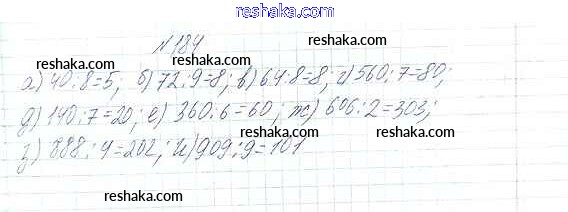 reshaka.com
№184
reshaka.com reshaka.com
а) 40:8=5; б) 72:9=8; в) 64:8=8; г) 560:7=80;
reshaka.com reshaka.com
д) 140:7=20; е) 360:6=60; ж) 606:2=303;
reshaka.com reshaka.com
з) 888:4=202; и) 909:9=101
reshaka.com
reshaka.com